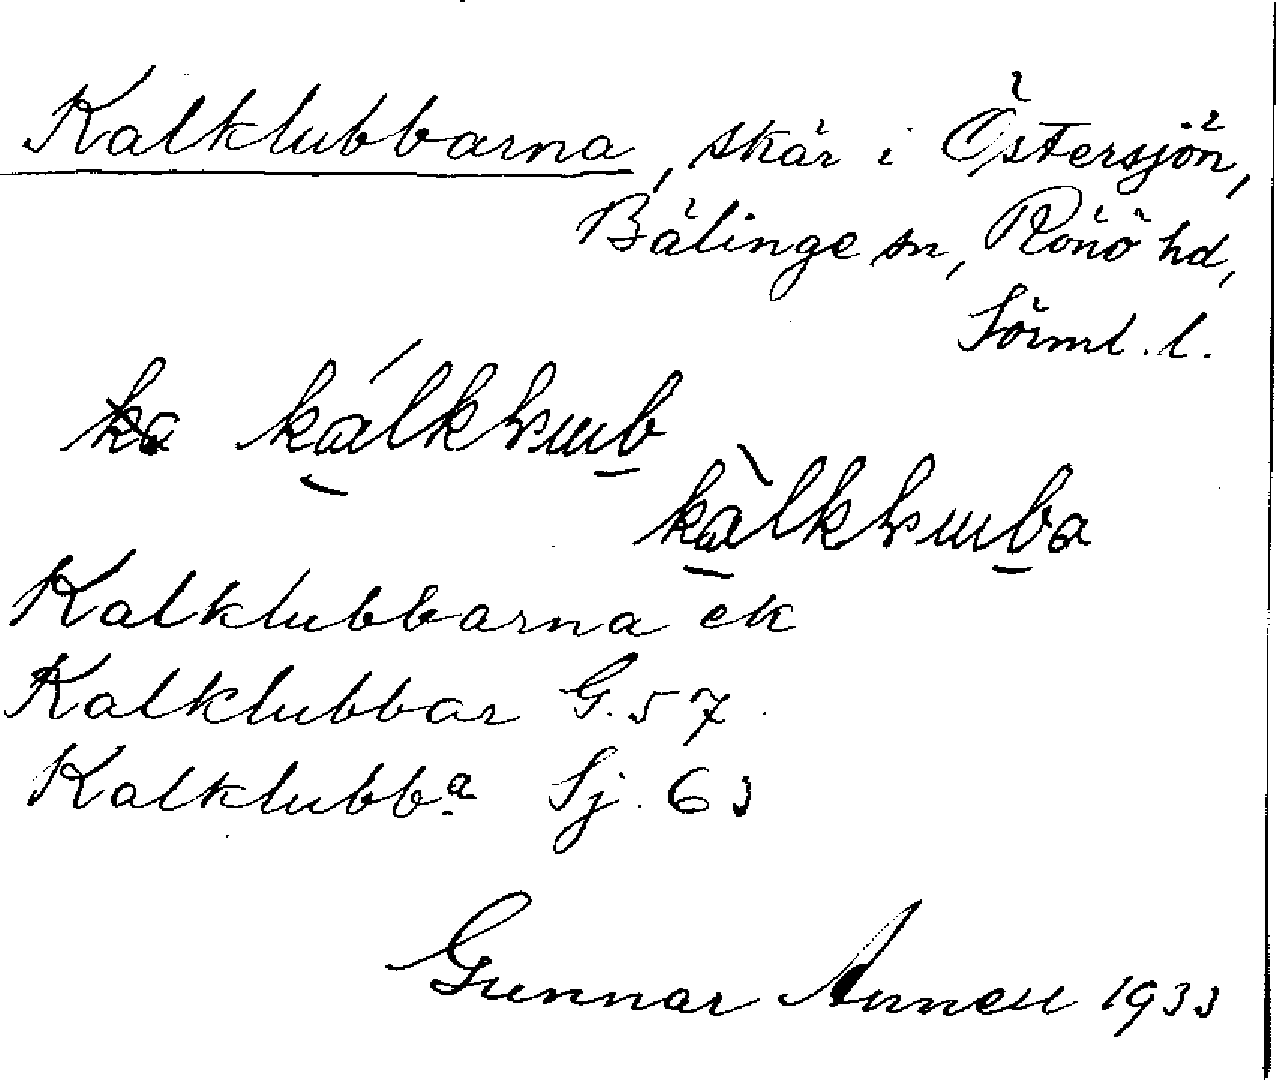 Kalklubbarna, skär i Östersjön,
Bälinge sn, Rönö hd,
Sörml. l.
kálkluub
kàlkluuba
Kalklubbarna ek
Kalklubbar G. 57.
Kalklubbª Sj. 63
Gunnar Annell 1933